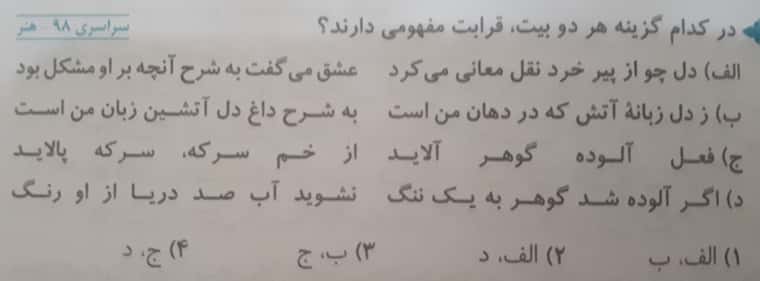 در کدام گزینه هر دو بیت، قرابت مفهومی دارند؟ سراسری ۹۸ - هنر
الف) دل چو از پیر خرد نقل معانی می‌کرد عشق می‌گفت به شرح آنچه بر او مشکل بود
ب) ز دل زبانهٔ آتش که در دهان من است به شرح داغ دل آتشین زبان من است
ج) فعل آلوده گوهر آلاید از خم سرکه، سرکه پالاید
د) اگر آلوده شد گوهر به یک ننگ نشوید آب صد دریا از او رنگ
۱) الف، ب ۲) الف، د ۳) ب، ج ۴) ج، د